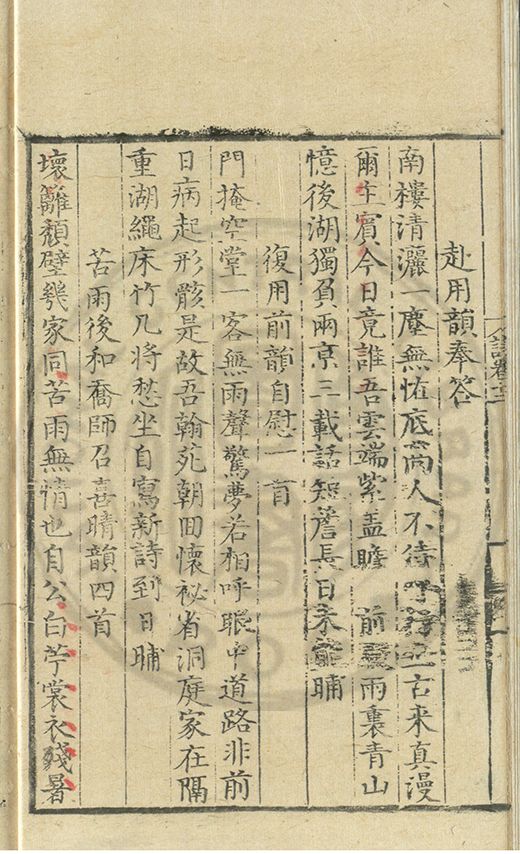 詩卷
赴用韻奉答
南樓清灑一塵無恠底高人不待呼古来真漫
爾主賓今日竟誰吾雲端紫盖瞻前雨裏青山
憶後湖獨負兩京三載話知簷長日来晡
復用前韻自慰一首
門掩空堂一客無雨聲驚夢若相呼眼中道路非前
日病起形骸是故吾翰苑朝回懷祕省洞庭家在隔
重湖繩床竹几將愁坐自寫新詩到日晡
苦雨後和喬師召喜晴韻四首
壞籬頹壁幾家同苦雨無情也自公白苧裳衣殘暑